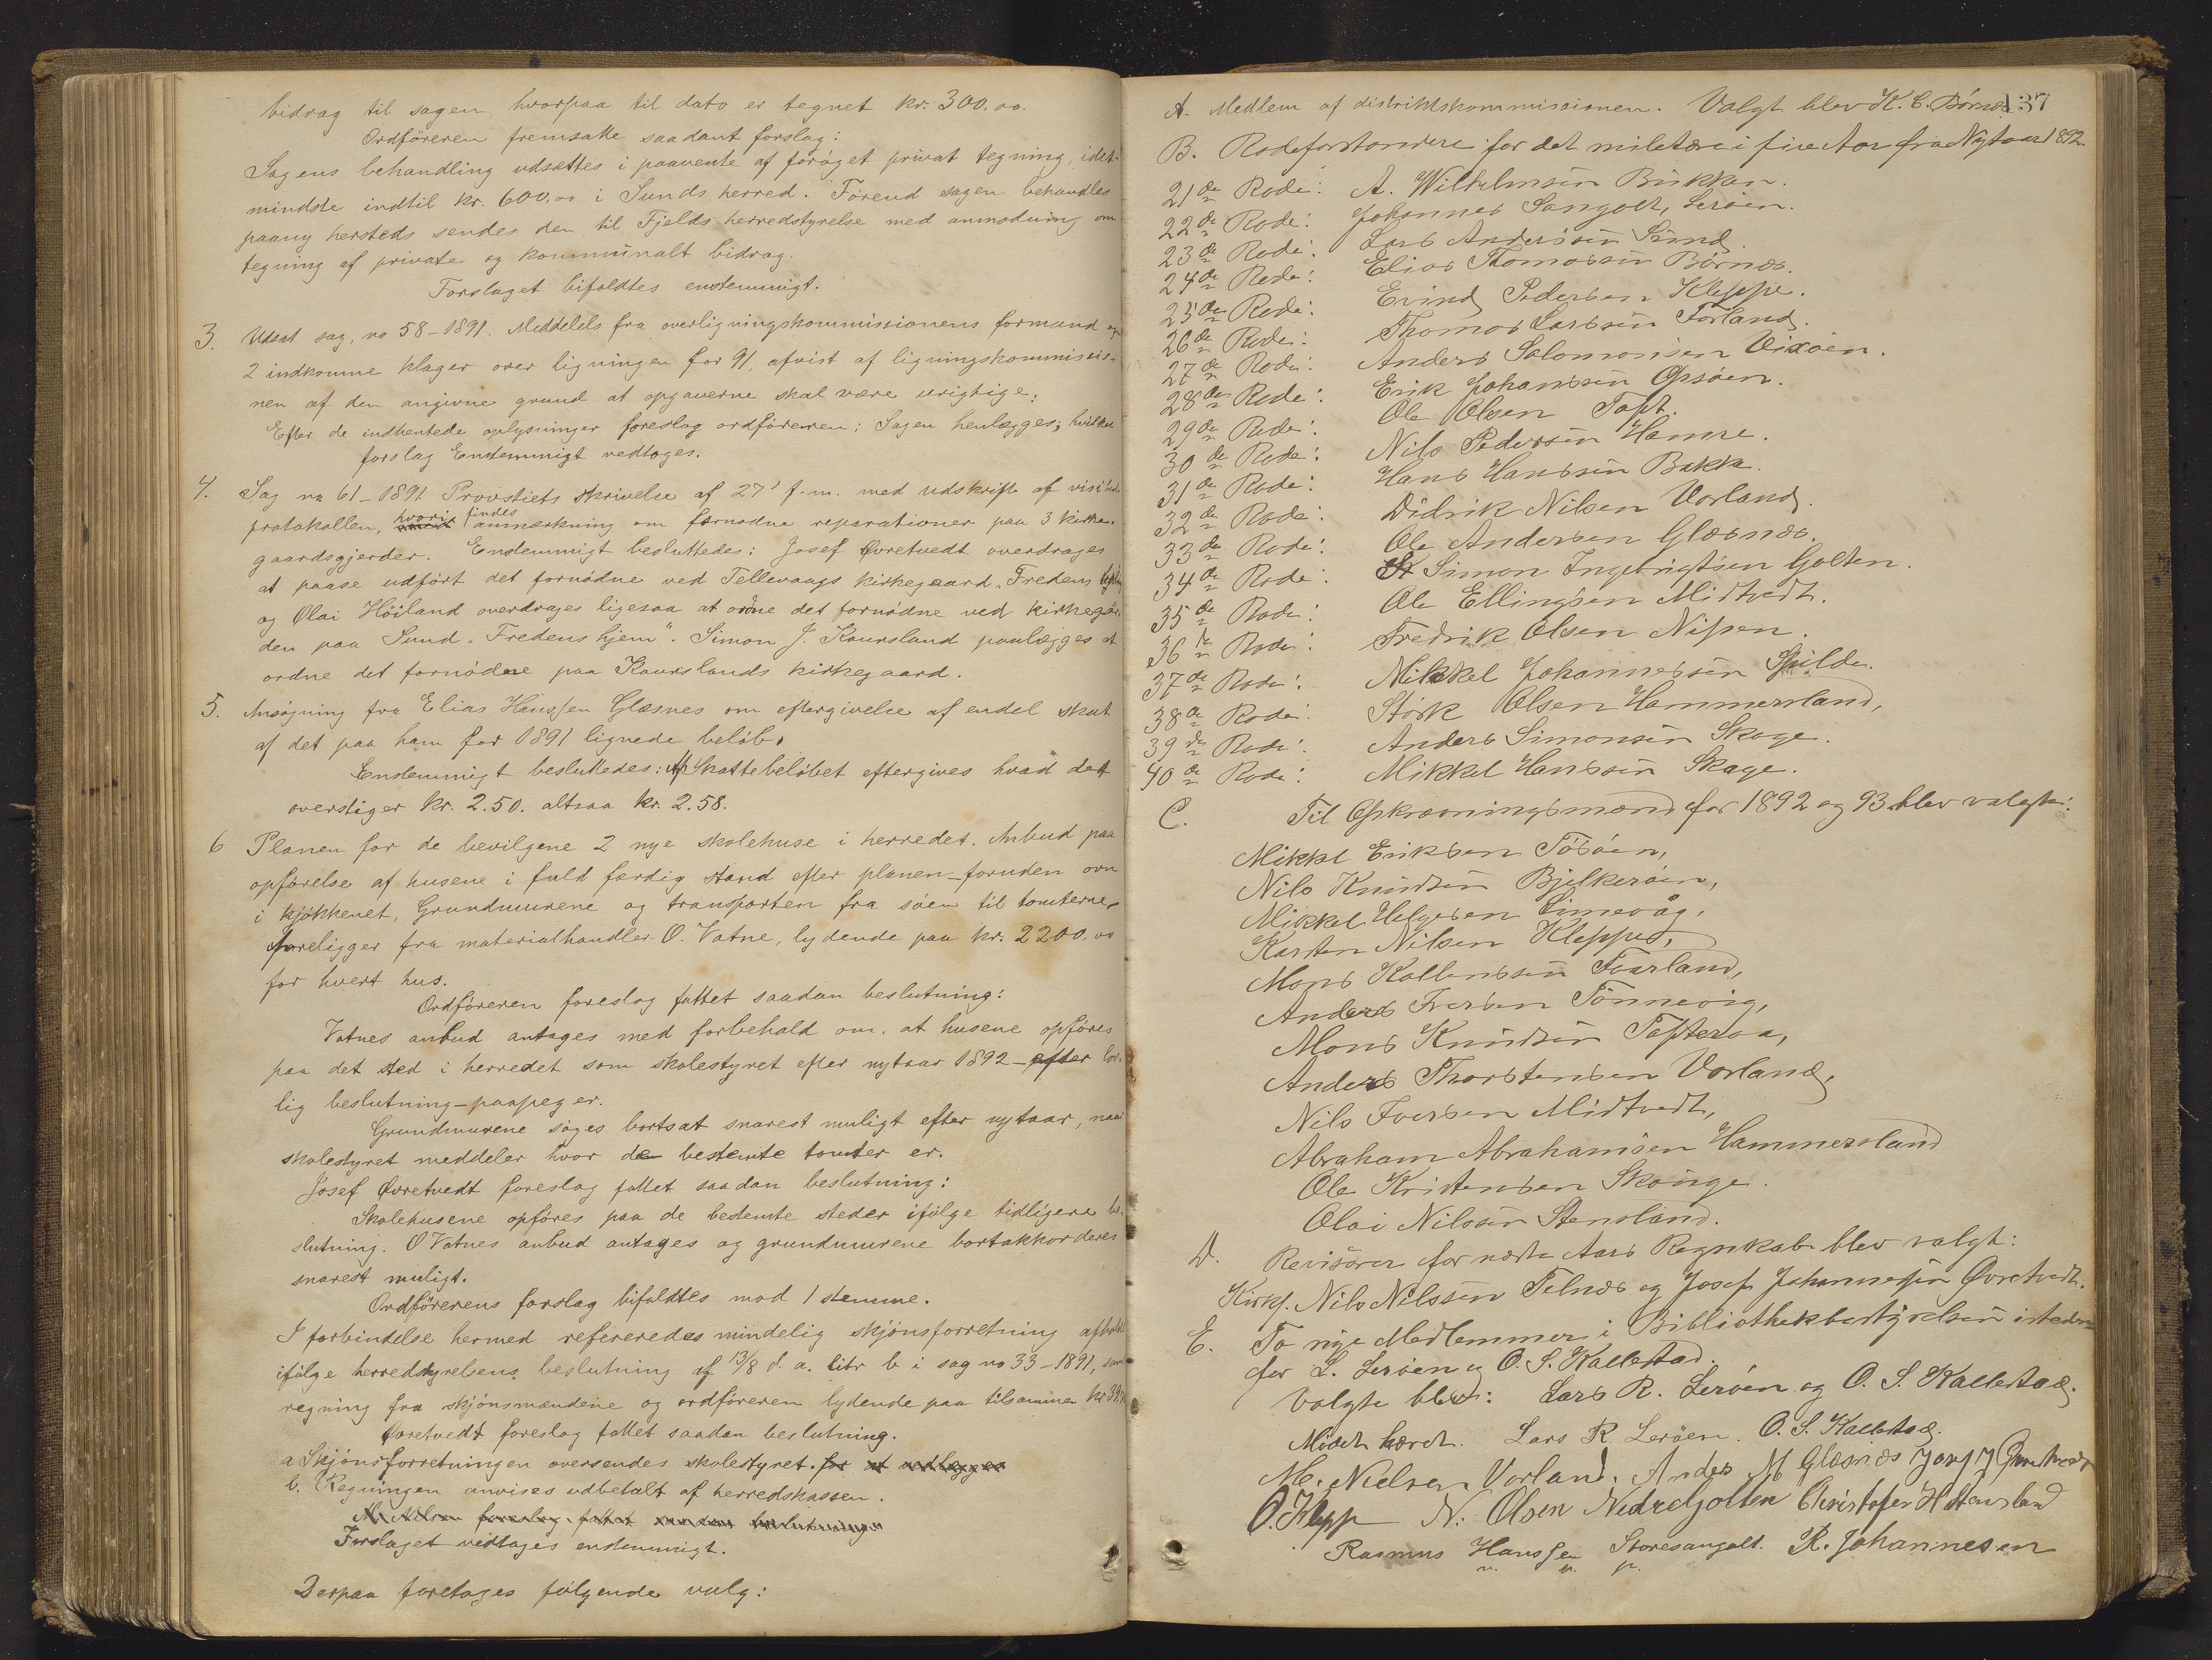 bidrag til sagen, hvorpaa til dato er tegnet kr. 300.00.
Ordföreren fremsatte saadant forslag:
Sagens behandling udsættes i paavente af forøget privat tegning, idet
mindste indtil kr. 600,00 i Sunds herred. Førend sagen behandles
paany hersteds sendes den til Fjelds herredstyrelse med anmodning om
tegning af private og kommunalt bidrag.
Forslaget bifaldtes enstemmigt.
3. Udsat sag, no 58-1891. Meddelels fra overligningskommissionens formand
2 indkomne klager over ligningen for 91, afvist af ligningskommissio-
nen af den angivne grund at opgaverne skal være urigtige.
Efter de indhentede oplysninger foreslog ordföreren: Sagen henlægges; hvilket
forslag Enstemmigt vedtoges.
4. Sag no 61-1891. Provstiets skrivelse af 27' f.m. med udskrift af
protokollen, hvori findes anmærkning om fornødne reparationer paa 3 kirke-
gaardsgjerder. Enstemmigt besluttedes: Josef Øvretvedt overdrages
at paase udført det fornødne ved Tellevaags kirkegaard "Fredens
og Olai Höiland overdrages ligesaa at ordne det fornødne ved kirkegaar-
den paa Sund "Fredens hjem". Simon J. Kaursland paalægges at
ordne det fornødne paa Kaurslands kirkegaard.
5. Ansøgning fra Elias Hanssen Glæsnes om eftergivelse af endel skat
af det paa ham for 1891 lignede beløb.
Enstemmigt besluttedes: Af Skattebeløbet eftergives hvad det
overstiger kr. 2.50. altsaa kr. 2.58.
6 Planen for de bevilgene 2 nye skolehuse i herredet. Anbud paa
opførelse af husene i fuld færdig stand efter planen - foruden ovn
i kjøkkenet, Grundmurene og transporten fra søen til tomterne,
foreligger fra materialhandler O. Vatne, lydende paa kr. 2200.00
for hvert hus.
Ordføreren foreslog fattet saadan beslutning:
Vatnes anbud antages med forbehold om, at husene opføres
paa det sted i herredet som skolestyret efter nytaar 1892 - efter lov-
lig beslutning - paapeger.
Grundmurene søges bortsat snarest muligt efter nytaar, naar
skolestyret meddeler hvor de bestemte tomter er.
Josef Øvretvedt foreslog fattet saadan beslutning:
Skolehusene opføres paa de bestemte steder ifølge tidligere be-
slutning. O Vatnes anbud antages og grundmurene bortakkorderes
snarest muligt.
Ordførerens forslag bifaldtes mod 1 stemme.
I forbindelse hermed refereredes mindelig skjønsforretning afholdt
ifølge herredstyrelsens beslutning af 13/8 d. a. litr b i sag no 33-1891, samt
regning fra skjønsmændene og ordføreren lydende paa tilsammen kr
Øvretvedt foreslog fattet saadan beslutning.
a Skjønsforretningen oversendes skolestyret. for at vedlægges
b. Regningen anvises udbetalt af herredskassen.
N. Nilsen foreslog fattet saadan beslutning"
Forslaget vedtages enstemmigt.
Derpaa foretages følgende valg:
137
A. Medlem af distriktskommissionen. Valgt blev K. E. Börnes
B. Rodeforstandere for det militære i fire Aar fra Nytaar 1892.
21de Rode: A. Wilhelmsen Bukken.
22de Rode: Johannes Sangolt, Leröen.
23de Rode: Lars Anderssen Sund.
24de Rode: Elias Thomassen Börnæs.
25de Rode: Erind Pedersen Kleppe.
26de Rode: Thomas Larssen Forland.
27de Rode: Anders Salomonsen Vixöen.
28de Rode: Erik Johanssen Opsöen.
29de Rode: Ole Olsen Toft.
30de Rode: Nils Pedersen Hamre.
31de Rode: Hans Hanssen Bakk.
32de Rode: Didrik Nilsen Vorland.
33de Rode: Ole Andersen Glæsnæs.
34de Rode: Simon Ingebrigtsen Golten.
35de Rode: Ole Ellingsen Midtvedt.
36te Rode: Fredrik Olsen Nipen.
37de Rode: Mikkel Johannessen Spilde.
38de Rode: Störk Olsen Hammersland,
39de Rode: Anders Simonsen Skoge.
40de Rode: Mikkel Hanssen Skage.
C. Til Opkrævningsmænd for 1892 og 93 blev valgte:
Mikkel Eriksen Tösöen,
Nils Knudsen Bjelkeröen,
Mikkel Helgesen Limevåg,
Karsten Nilsen Kleppes,
Mons Kallenssen Foarland,
Anders Iversen Tönnevig,
Mons Knudsen Tofteroa,
Anders Thorstensen Vorland,
Nils Iversen Midtvedt,
Abraham Abrahamsen Hammersland
Ole Kristensen Skoge.
Olai Nilssen Stensland.
D. Revisorer for næste Aars Regnskab blev valgt:
Kirks. Nils Nilssen Telnæs og Josef Johannessen Øvretvedt.
E. To nye Medlemmer i Bibliothekbestyrelsen isteden
for L. Leröen og O. S. Kallestad.
Valgte blev: Lars R. Leröen og O. S. Kallestad.
Mödet hævet. Lars R. Leröen. O. S. Kallestad.
M. Nielsen Vorland. Anders M Glæsnæs
O. Klepp N. Olsen NedreGolten Christofer H Stensland
Rasmus Hanssen Storesangolt. R. Johannesen